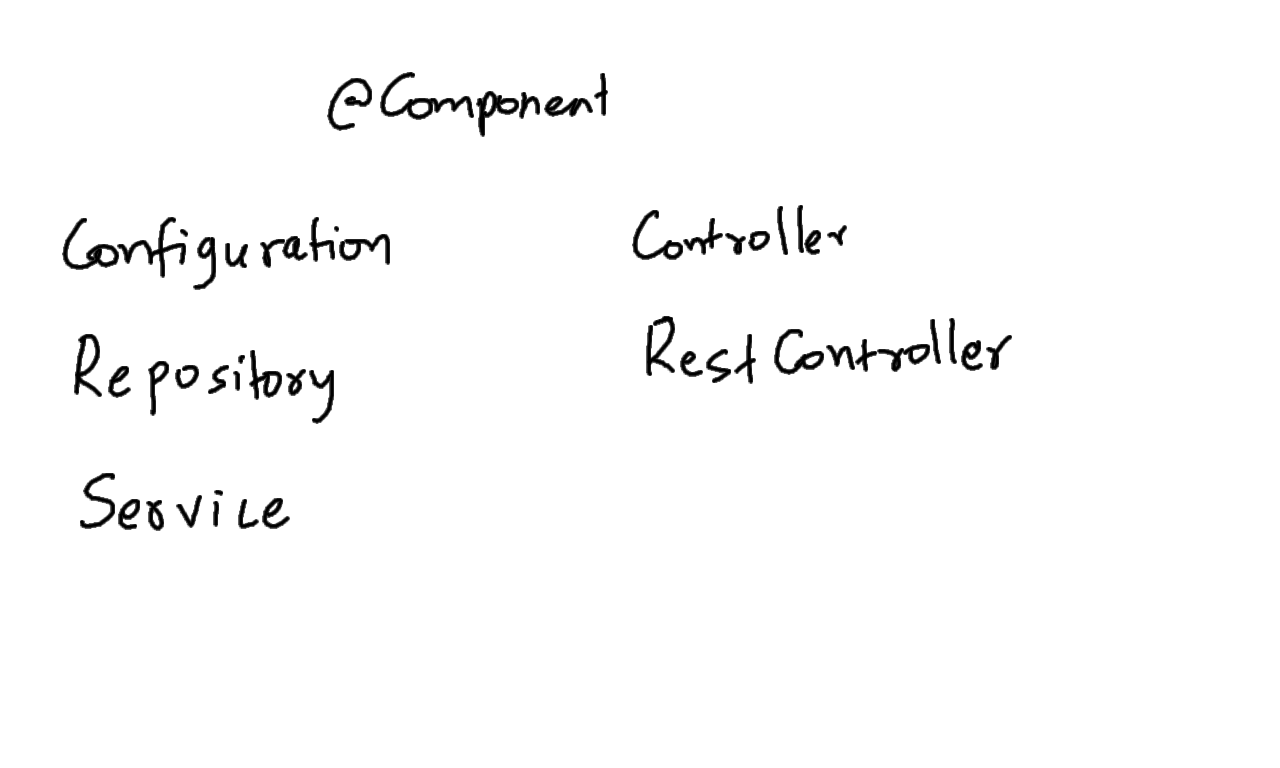 @Component
Configuration
Repository
Service
Controller
RestController